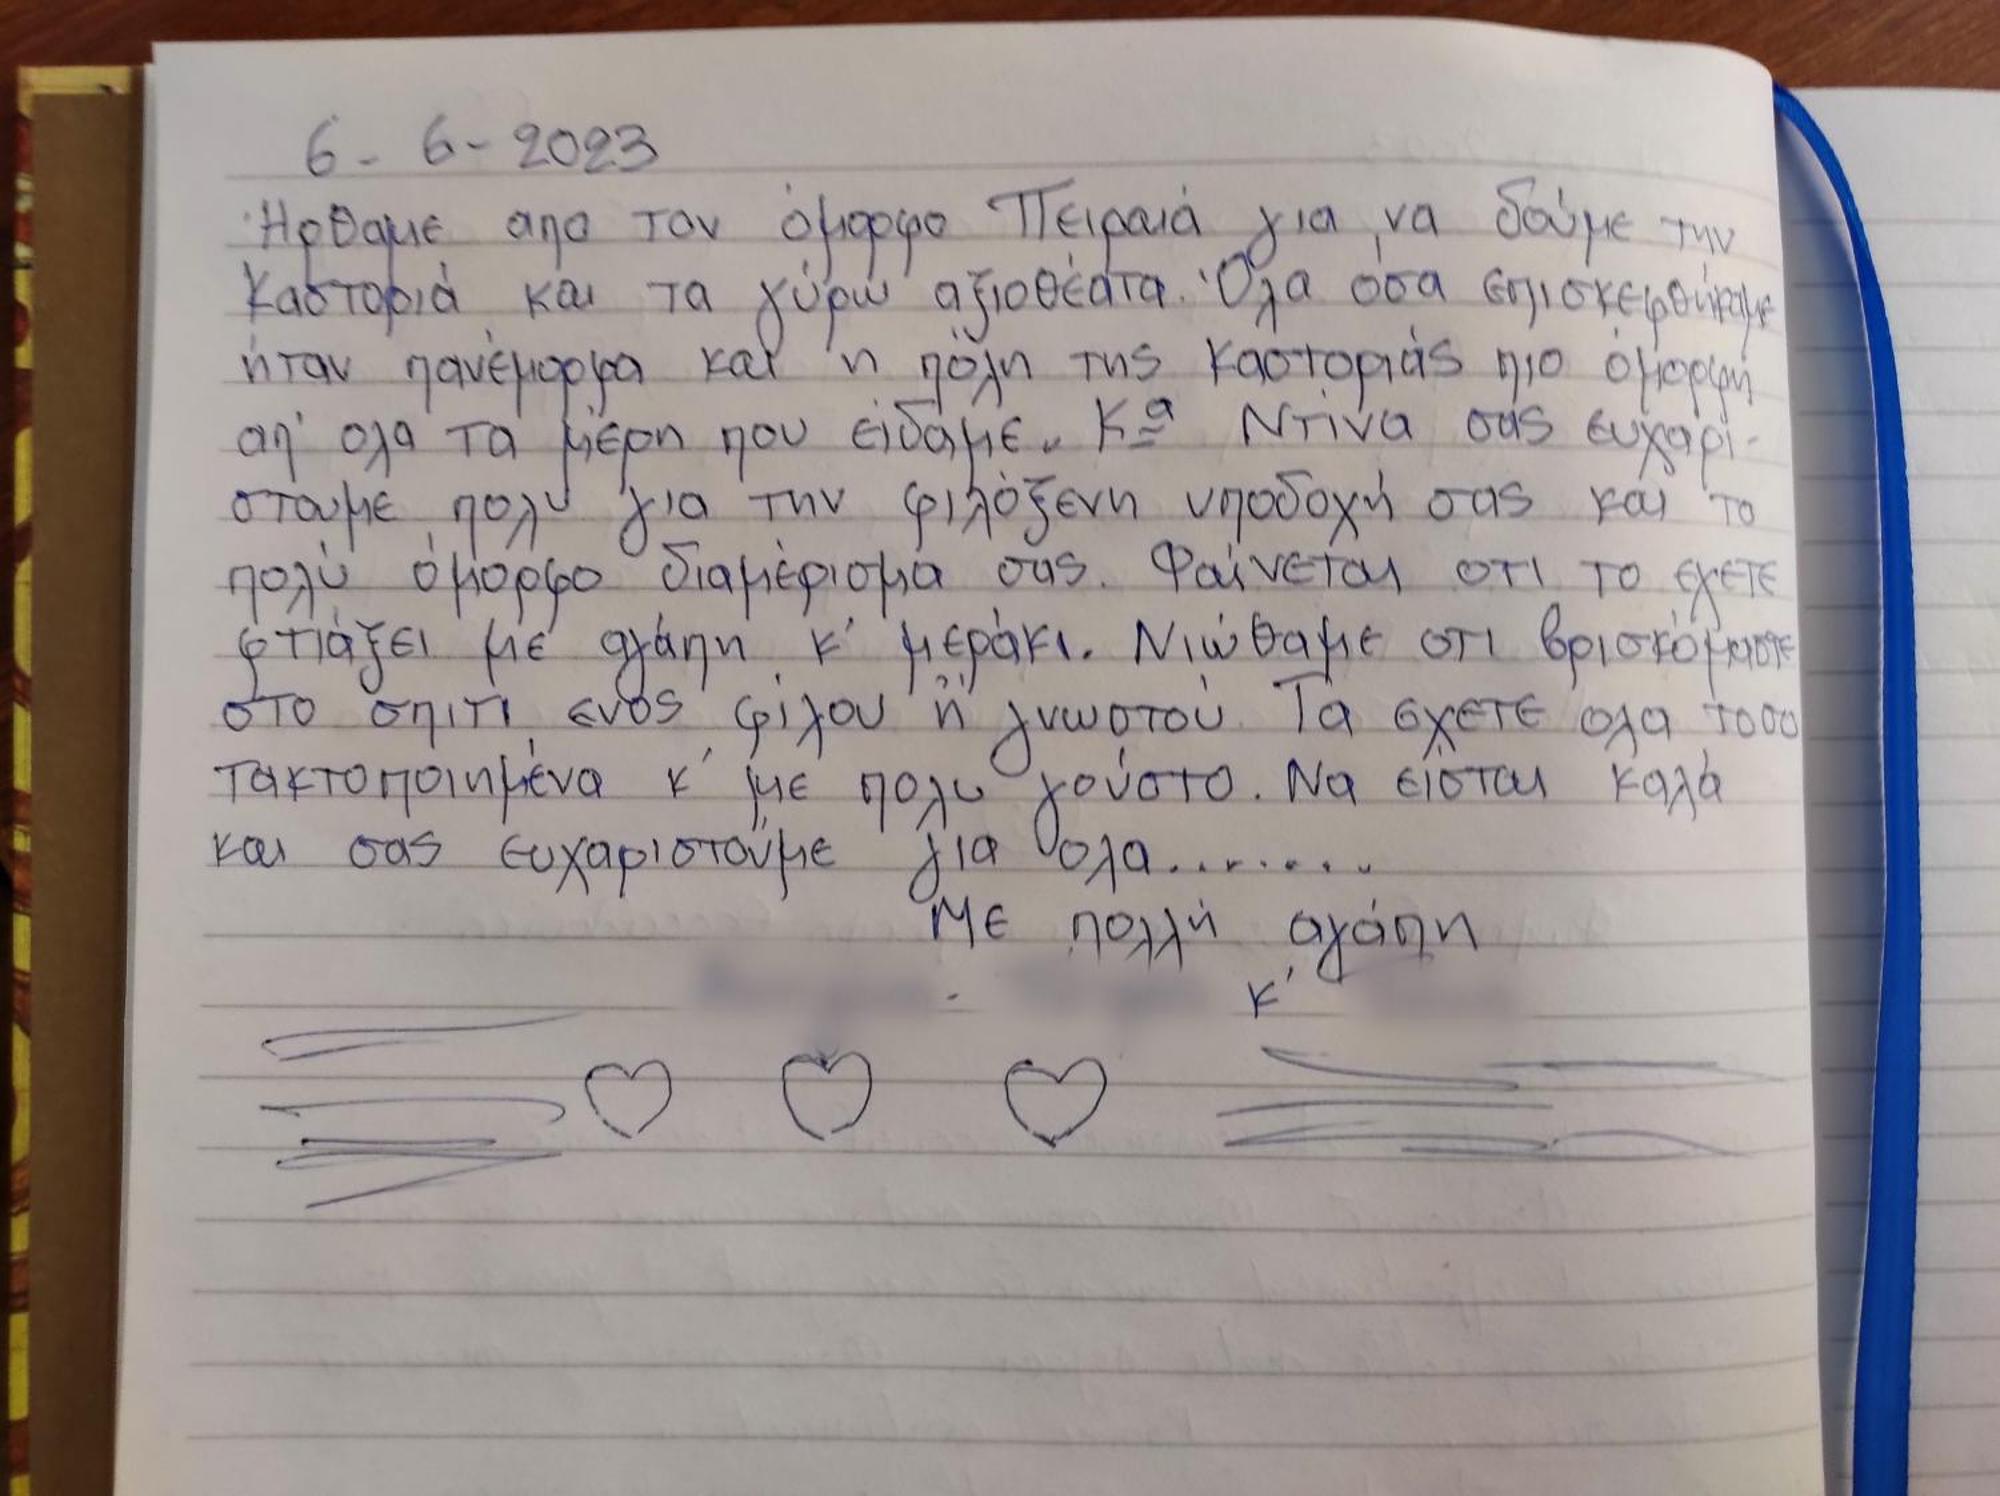 6 - 6 - 2023
Ήρθαμε απο τον όμορφο Πειραιά για να δούμε την
Καστοριά και τα γύρω αξιοθέατα. Όλα όσα επισκεφθήκαμε
ήταν πανέμορφα και η πόλη της Καστοριάς πιο όμορφη
απ' ολα τα μέρη που είδαμε. Κα Ντίνα σας ευχαρι-
στουμε πολυ για την φιλόξενη υποδοχή σας και το
πολύ όμορφο διαμέρισμα σας. Φαίνεται οτι το εχετε
φτιάξει με αγάπη κ' μεράκι. Νιώθαμε οτι βρισκόμαστε
στο σπιτι ενος φίλου ή γνωστού. Τα εχετε ολα τοσο
τακτοποιημένα κ' με πολυ γούστο. Να είσται καλά
και σας ευχαριστούμε για ολα........
Με πολλή αγάπη
- κ'